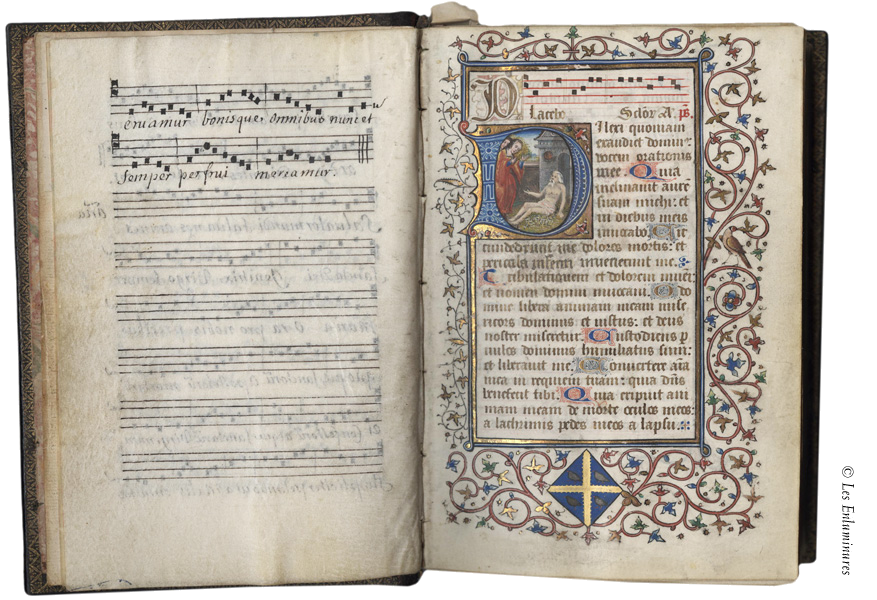 eruamur bonisque, omnibus nunc et
semper perfrui meriamur.
Placebo Seclor A. ps
Dilexi quoniam
exaudiet domin9
vocem orationis
mee. Quia
inclinavit aure
suam michi: et
in diebus meis
invocabo. Cir
cumdederunt me dolores mortis: et
pericula inferni invenerunt me.
Tribulationem et dolorem inveni
et nomen domini invocavi. O do
mine libera animam meam mise
ricors dominus et iustus: et deus
noster miseretur. Custodiens p
vulos dominus humiliatus sum:
et liberavit me. Convertere aīa
mea in requiem tuam: quia dn̄s
benefecit tibi. Quia eripuit ani
mam meam de morte oculos meos:
a lachrimis pedes meos a lapsu.
© Les Enluminures